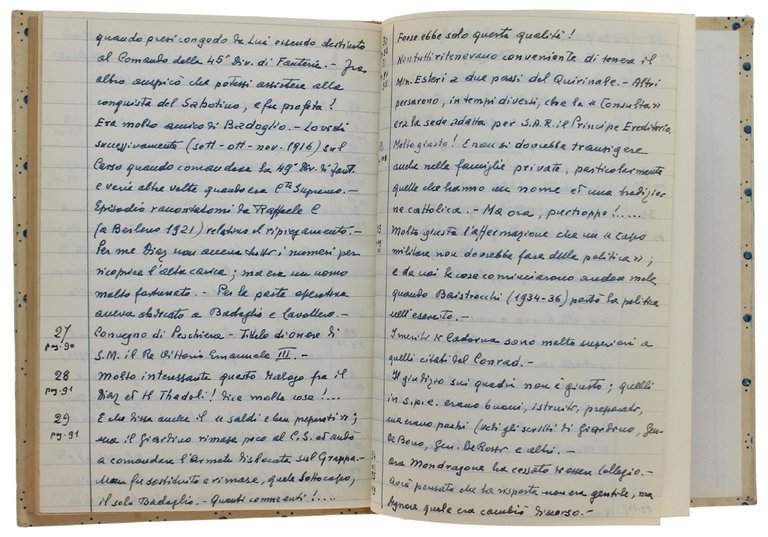 quando presi congedo da Lui essendo destinato
al Comando della 45ª Div. di Fanteria.- Fra
altro auspicò che potessi assistere alla
conquista del Sabotino, e fu profeta!
Era molto amico di Badoglio.- Lo vidi
successivamente (sett-ott-nov. 1916) sul
Carso quando comandava la 49ª Div. di fant.
e varie altre volte quando era Cte Supremo.-
Episodio raccontatomi da Raffaele C
(a Berlino 1921) relativo al ripiegamento.-
Per me Diaz non aveva tutti i numeri per
ricoprire l'alta carica; ma era un uomo
molto fortunato.- Per la parte operativa
aveva Badoglio e Cavallero.-
27
pag. 90
Convegno di Peschiera - Titolo di onore di
S.M. il Re Vittorio Emanuele III.-
28
pag. 91
Molto interessante questo dialogo fra il
Diaz ed il Thadoli! Dice molte cose!...
29
pag. 91
E che dissa anche il « saldi e ben preparati »;
ma il Giardino rimase poco al C.S. ed andò
a comandare l'Armata dislocata sul Grappa.-
Non fu sostituito e rimase, quale Sottocapo,
il solo Badoglio.- Quanti commenti!....
Forse ebbe solo questa qualità!
Non tutti ritenevano conveniente di tenere il
Min. Esteri a due passi dal Quirinale.- Altri
pensarono, in tempi diversi, che la « Consulta »
era la sede adatta per S.A.R. il Principe Ereditario.
Molto giusto! E non si dovrebbe transigere
anche nelle famiglie private, particolarmente
quelle che hanno un nome ed una tradizio-
ne cattolica.- Ma ora, purtroppo!.....
Molto giusta l'affermazione che un « Capo
militare non dovrebbe fare della politica »;
e da noi le cose cominciarono andare male
quando Baistrocchi (1934-36) portò la politica
nell'esercito.-
I meriti di Cadorna sono molto superiori a
quelli citati dal Conrad.-
Il giudizio sui quadri non è giusto; quelli
in s.p.e. erano buoni, istruiti, preparati,
ma erano pochi (vedi gli scritti di Giardino, Gen.
De Bono, Gen. De Rossi e altri.-
Ora Mondragone ha cessato di essere Collegio.-
Avrà pensato che la risposta non era gentile, ma
signore quale era cambiò discorso.-